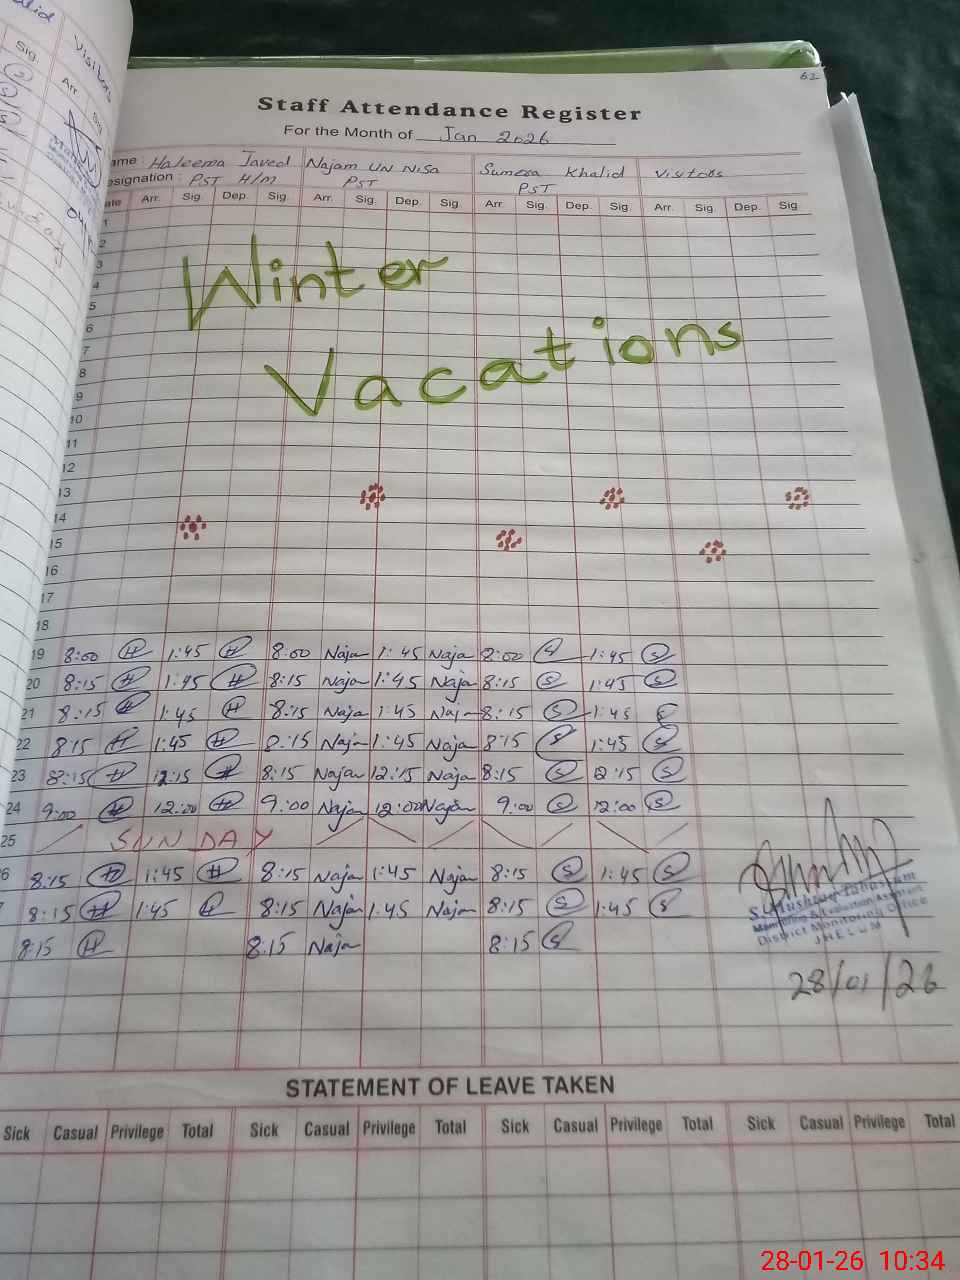 62
Staff Attendance Register
For the Month of Jan 2026
ame : Haleema Javed Najam UN NISA Sumera Khalid Visitors
esignation : PST H/M PST PST
ate Arr. Sig. Dep. Sig. Arr. Sig. Dep. Sig. Arr. Sig. Dep. Sig. Arr. Sig. Dep. Sig.
1
2
3
4
5
6
7
8
9
10
11
12
13
14
15
16
17
18
Winter
Vacations
19 8:00 H 1:45 H 8:00 Naja 1:45 Naja 8:00 S 1:45 S
20 8:15 H 1:45 H 8:15 Naja 1:45 Naja 8:15 S 1:45 S
21 8:15 H 1:45 H 8:15 Naja 1:45 Naja 8:15 S 1:45 S
22 8:15 H 1:45 H 8:15 Naja 1:45 Naja 8:15 S 1:45 S
23 8:15 H 12:15 H 8:15 Naja 12:15 Naja 8:15 S 12:15 S
24 9:00 H 12:00 H 9:00 Naja 12:00 Naja 9:00 S 12:00 S
25 SUNDAY
6 8:15 H 1:45 H 8:15 Naja 1:45 Naja 8:15 S 1:45 S
7 8:15 H 1:45 H 8:15 Naja 1:45 Naja 8:15 S 1:45 S
8:15 H 8:15 Naja 8:15 S
Monitoring & Evaluation Assistant
District Monitoring Office
JHELUM
28/01/26
STATEMENT OF LEAVE TAKEN
Sick Casual Privilege Total Sick Casual Privilege Total Sick Casual Privilege Total Sick Casual Privilege Total
Visitors
Sig. Arr.
28-01-26 10:34